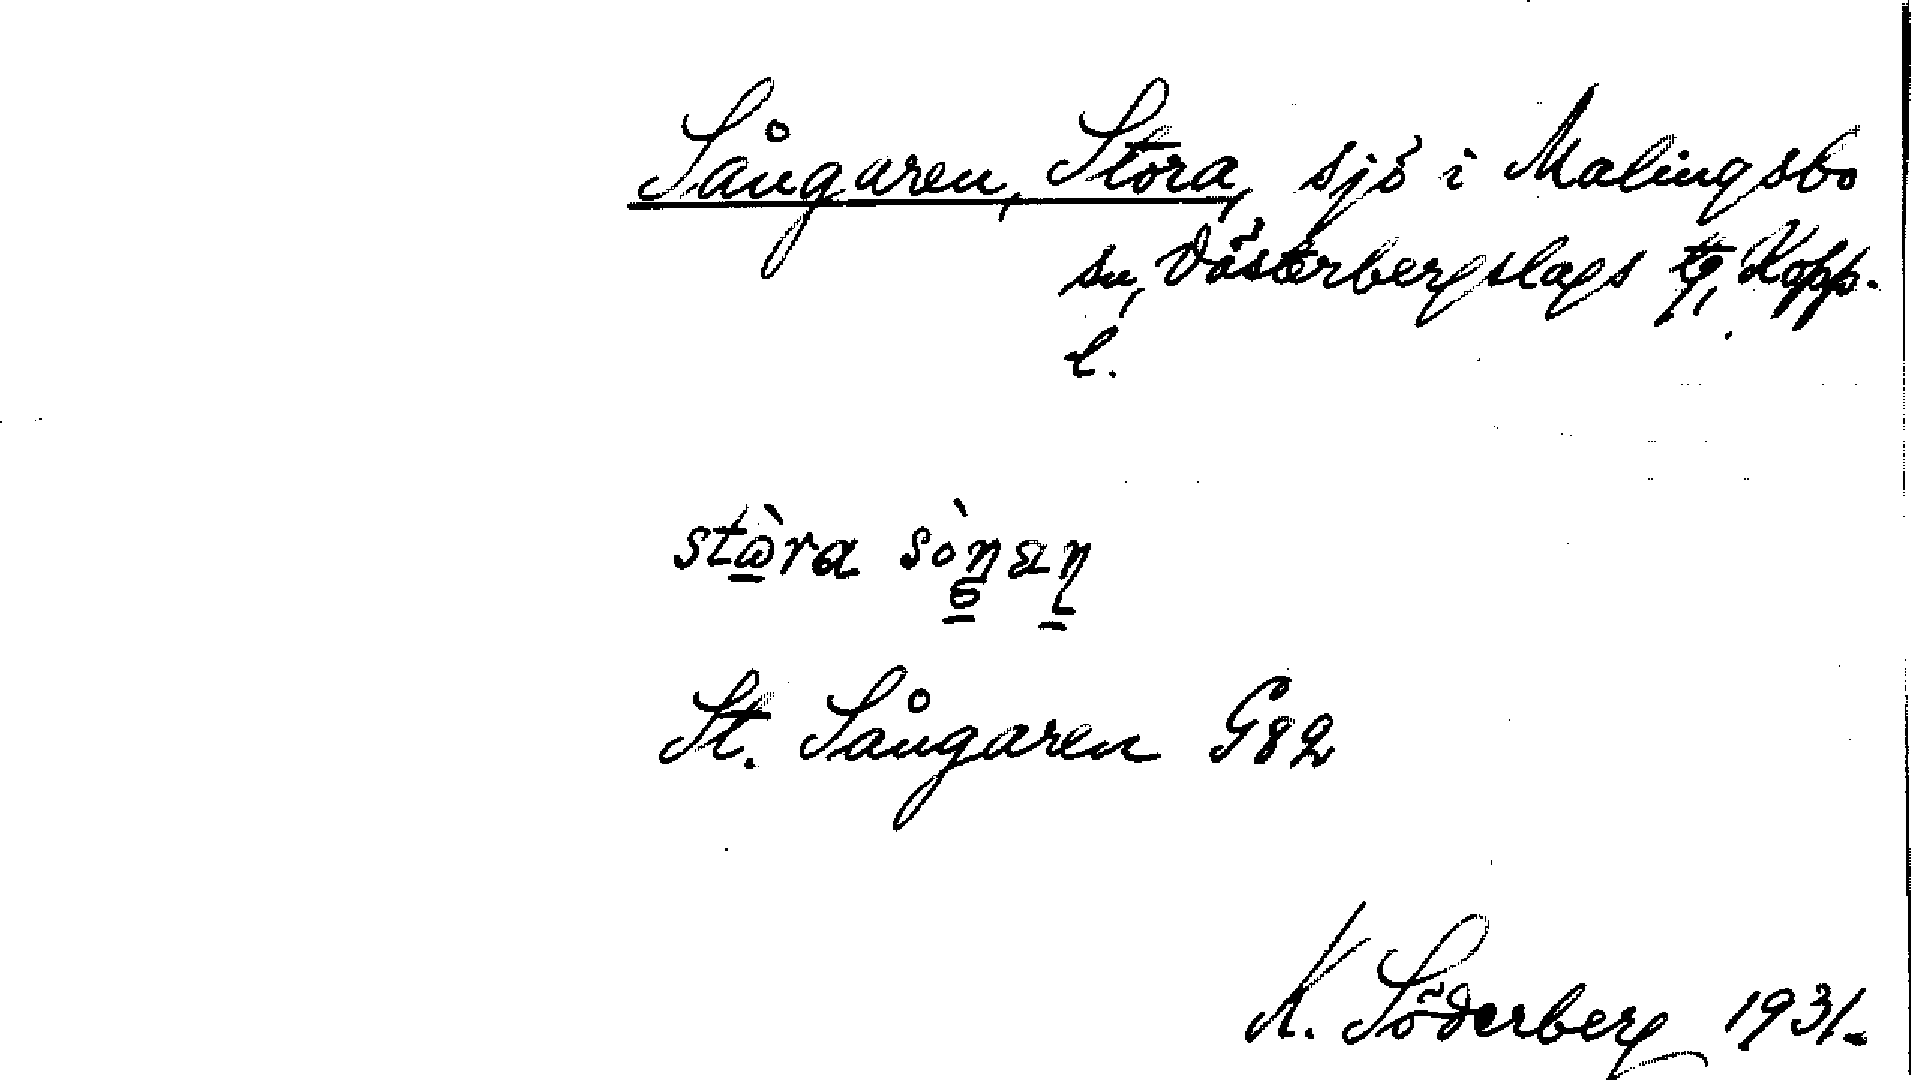 Sångaren, Stora, sjö i Malingsbo
sn, Västerbergslags tg, Kopp.
l.
stora
St. Sångaren G82
K. Söderberg 1931.